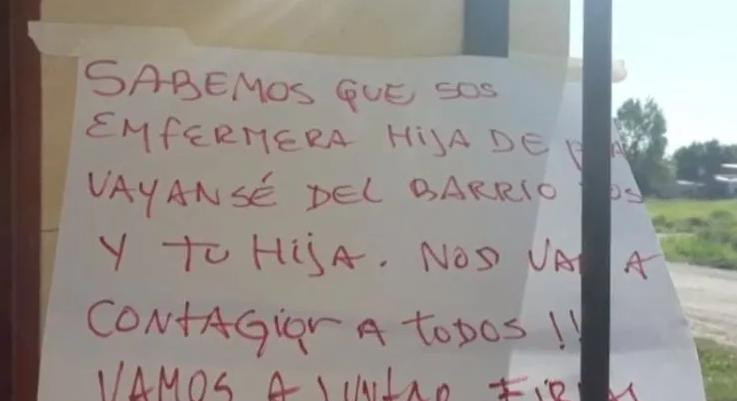 SABEMOS QUE SOS
EMFERMERA HIJA DE
VAYANSÉ DEL BARRIO
Y TU HIJA. NOS VA A
CONTAGIAR A TODOS !!
VAMOS A JUNTAR